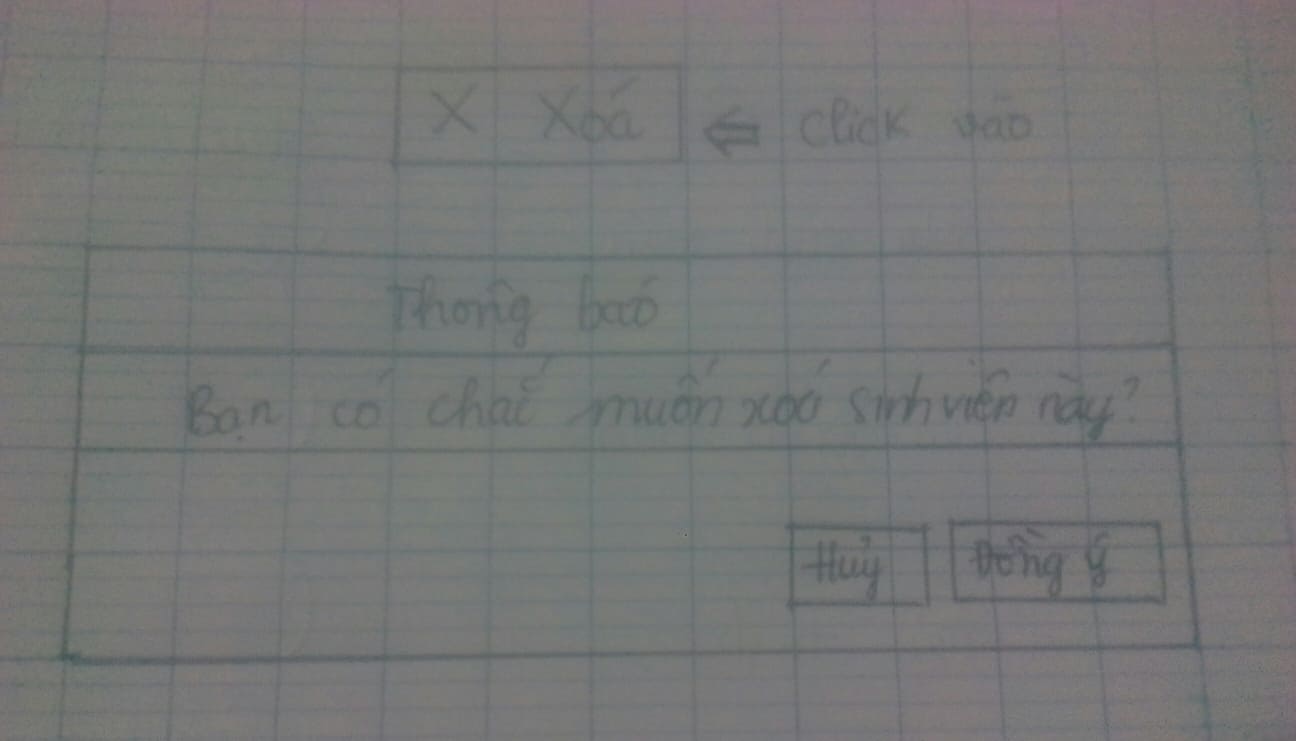 X Xoá ⇐ Click vào
Thông báo
Bạn có chắ muốn xoá sinh viên này?
Huỷ Đồng ý